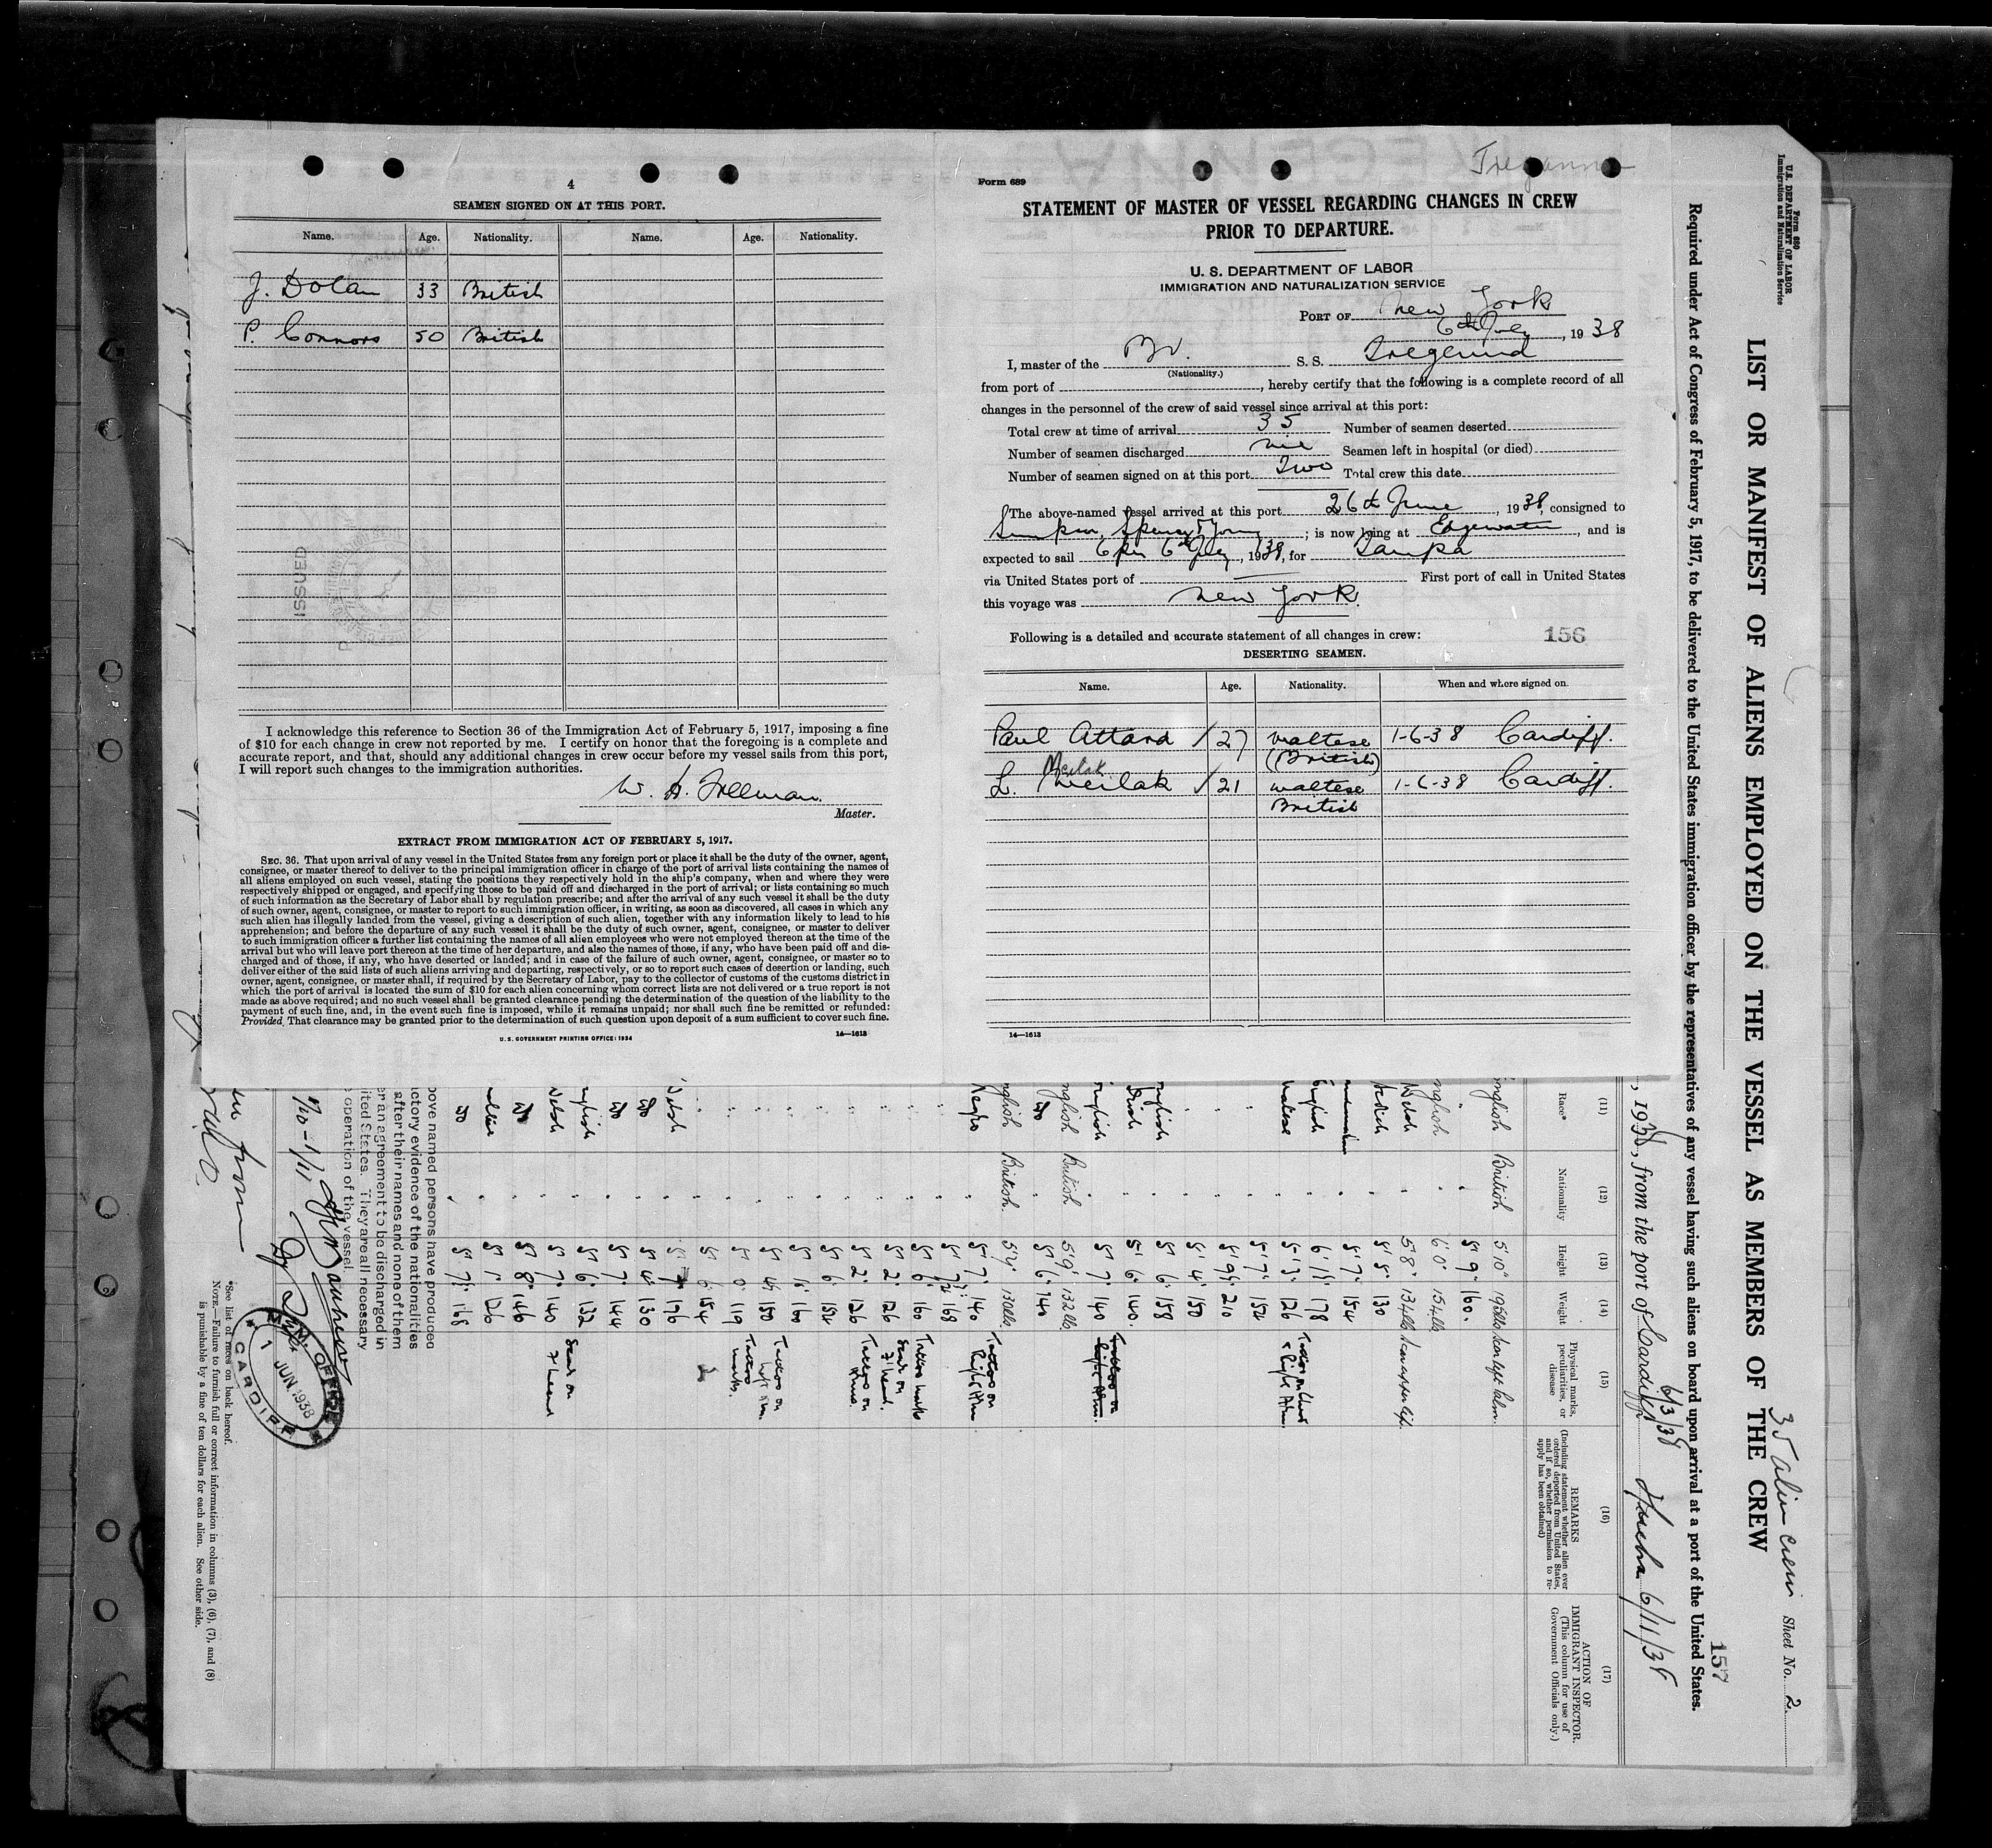 4
SEAMEN SIGNED ON AT THIS PORT.
Name. Age. Nationality. Name. Age. Nationality.
J. Dolan 33 British
P. Connors 50 British
ISSUED
I acknowledge this reference to Section 36 of the Immigration Act of February 5, 1917, imposing a fine
of $10 for each change in crew not reported by me. I certify on honor that the foregoing is a complete and
accurate report, and that, should any additional changes in crew occur before my vessel sails from this port,
I will report such changes to the immigration authorities.
W. H. Freeman.
Master.
EXTRACT FROM IMMIGRATION ACT OF FEBRUARY 5, 1917.
SEC. 36. That upon arrival of any vessel in the United States from any foreign port or place it shall be the duty of the owner, agent,
consignee, or master thereof to deliver to the principal immigration officer in charge of the port of arrival lists containing the names of
all aliens employed on such vessel, stating the positions they respectively hold in the ship's company, when and where they were
respectively shipped or engaged, and specifying those to be paid off and discharged in the port of arrival; or lists containing so much
of such information as the Secretary of Labor shall by regulation prescribe; and after the arrival of any such vessel it shall be the duty
of such owner, agent, consignee, or master to report to such immigration officer, in writing, as soon as discovered, all cases in which any
such alien has illegally landed from the vessel, giving a description of such alien, together with any information likely to lead to his
apprehension; and before the departure of any such vessel it shall be the duty of such owner, agent, consignee, or master to deliver
to such immigration officer a further list containing the names of all alien employees who were not employed thereon at the time of the
arrival but who will leave port thereon at the time of her departure, and also the names of those, if any, who have been paid off and dis-
charged and of those, if any, who have deserted or landed; and in case of the failure of such owner, agent, consignee, or master so to
deliver either of the said lists of such aliens arriving and departing, respectively, or so to report such cases of desertion or landing, such
owner, agent, consignee, or master shall, if required by the Secretary of Labor, pay to the collector of customs of the customs district in
which the port of arrival is located the sum of $10 for each alien concerning whom correct lists are not delivered or a true report is not
made as above required; and no such vessel shall be granted clearance pending the determination of the question of the liability to the
payment of such fine, and, in the event such fine is imposed, while it remains unpaid; nor shall such fine be remitted or refunded:
Provided, That clearance may be granted prior to the determination of such question upon deposit of a sum sufficient to cover such fine.
U.S. GOVERNMENT PRINTING OFFICE: 1934 14—1613
Form 689
STATEMENT OF MASTER OF VESSEL REGARDING CHANGES IN CREW
PRIOR TO DEPARTURE.
U. S. DEPARTMENT OF LABOR
IMMIGRATION AND NATURALIZATION SERVICE
PORT OF New York
6th July, 1938
I, master of the Br. S. S.
(Nationality.)
from port of , hereby certify that the following is a complete record of all
changes in the personnel of the crew of said vessel since arrival at this port:
Total crew at time of arrival 35 Number of seamen deserted
Number of seamen discharged nil Seamen left in hospital (or died)
Number of seamen signed on at this port Two Total crew this date
The above-named vessel arrived at this port 26th June, 1938, consigned to
Simpson, Spence & Young; is now lying at Edgewater, and is
expected to sail 6pm 6th July, 1938, for Tampa
via United States port of First port of call in United States
this voyage was New York.
Following is a detailed and accurate statement of all changes in crew: 156
DESERTING SEAMEN.
Name. Age. Nationality. When and where signed on.
Paul Attard / 27 Maltese 1-6-38 Cardiff.
(British)
Meilak
L. Meilak / 21 Maltese 1-6-38 Cardiff.
British
14—1613
Form 680
U.S. DEPARTMENT OF LABOR
Immigration and Naturalization Service
35 alien crew Sheet No. 2
LIST OR MANIFEST OF ALIENS EMPLOYED ON THE VESSEL AS MEMBERS OF THE CREW
157
Required under Act of Congress of February 5, 1917, to be delivered to the United States immigration officer by the representatives of any vessel having such aliens on board upon arrival at a port of the United States.
, 1938, from the port of Cardiff 6/3/38 6/11/38
(11) (12) (13) (14) (15) (16) (17)
Race* Nationality Height Weight Physical marks, peculiarities, or disease
REMARKS
(Including statement whether alien ever ordered deported from United States, and if so, whether permission to re-apply has been obtained)
ACTION OF IMMIGRANT INSPECTOR.
(This column for use of Government Officials only.)
English British 5'10" 195lbs
" " 5 9 160.
English 6'0" 154lbs
Welsh " 5'8" 134lbs
5 8 130
5 7 154
English 6 1½ 178
Maltese 5 3 126 Tattoo on Chest & Right Arm.
5 7 154
5 9½ 210
5 4 150
English 5 6 158
Irish 5 6 140.
English 5 7 140 Tattoo on Right Arm.
English British 5'9" 132lbs
Do 5 6 140
English British. 130lbs
Negro 5 7 140 Tattoo on Right Arm
5 7½ 168
5 6 160 Tattoo marks
5 2 126 Scar on F'head.
5 2 126 Tattoo on Arms.
5 6 154
160
5 4½ 150 Tattoo on Left Arm.
119 Tattoo marks.
5 6 154
Welsh 176
Do 5 4 130
Do 5 7 144
English 5 6 132
Welsh 5 7 140 Scar on F'head
Do 5 8 146
5 1 126
Do 5 7½ 168
bove named persons have produced
ctory evidence of the nationalities
after their names and none of them
er an agreement to be discharged in
ited States. They are all necessary
operation of the vessel.
M.M. OFFICE
1 JUN 1938
CARDIFF
from
*See list of races on back hereof.
NOTE.—Failure to furnish full or correct information in columns (3), (6), (7), and (8)
is punishable by a fine of ten dollars for each alien. See other side.